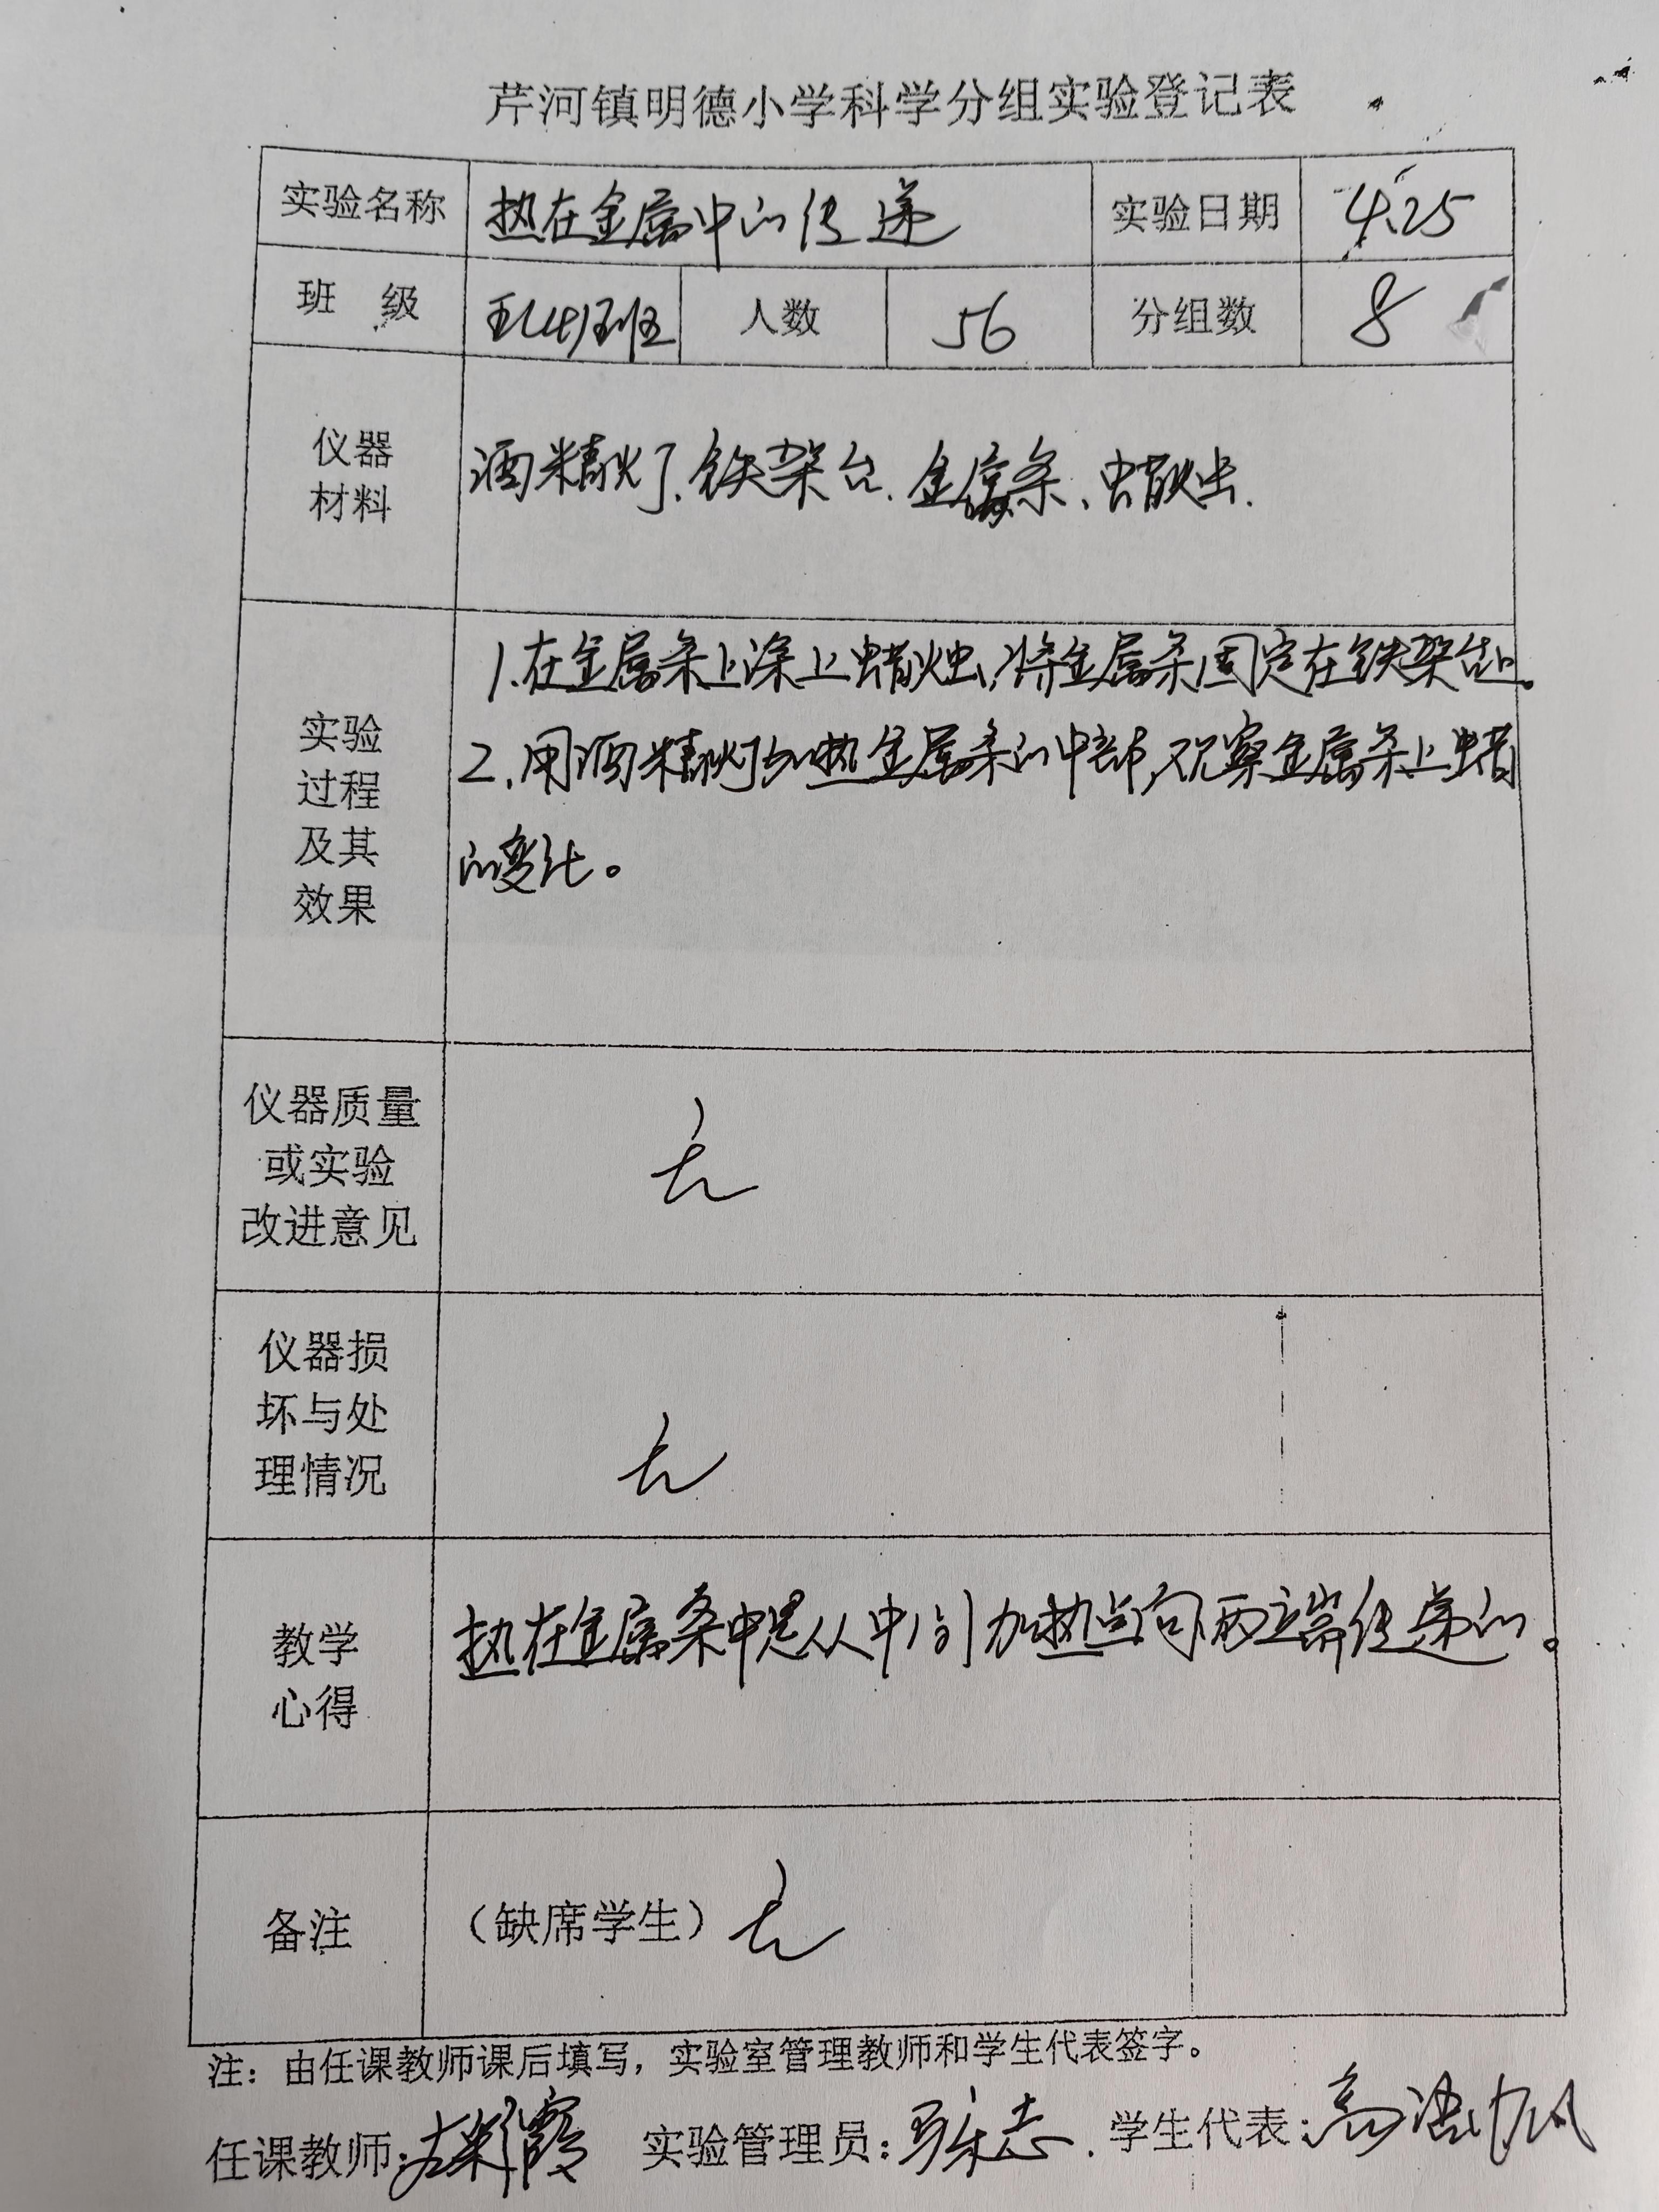 芹河镇明德小学科学分组实验登记表
实验名称 热在金属中的传递 实验日期 4.25
班 级 五(4)班 人数 56 分组数 8
仪器
材料
酒精灯、铁架台、金属条、蜡烛.
实验
过程
及其
效果
1.在金属条上涂上蜡烛,将金属条固定在铁架台上。
2.用酒精灯加热金属条的中部,观察金属条上蜡
的变化。
仪器质量
或实验
改进意见
无
仪器损
坏与处
理情况
无
教学
心得
热在金属条中是从中间加热点向两端传递的。
备注 (缺席学生) 无
注：由任课教师课后填写，实验室管理教师和学生代表签字。
任课教师: 实验管理员: 学生代表: